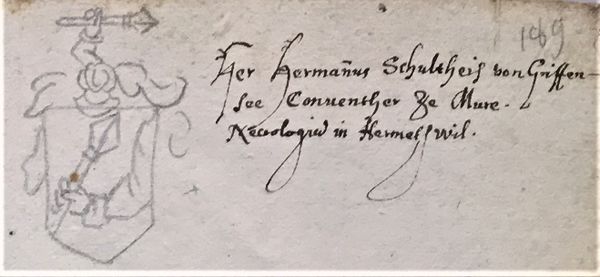 189
Her Hermañus Schultheis von Griffen-
see Conventher Ze Mure.
Necrologiũ in Hermetswil.